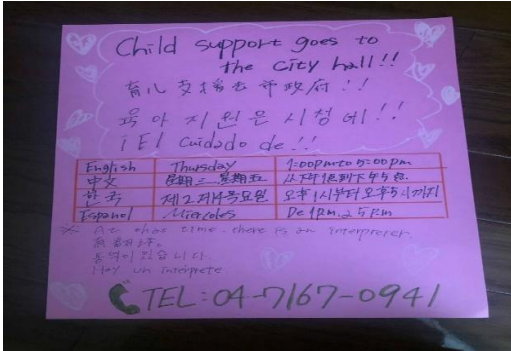 Child support goes to
the city hall!!
育儿支援去市政府!!
육아지원은 시청에!!
¡El Cuidado de!!
English Thursday 1:00pm to 5:00pm
中文 星期三 星期五 从下午1点到下午5点
한국 제2.제4목요일 오후1시부터 오후5시까지
Espanol Miercoles De 1P.m. a 5 P.m
※ At that time, there is an interpreter.
통역이 있습니다.
Hay un interprete
TEL:04-7167-0941